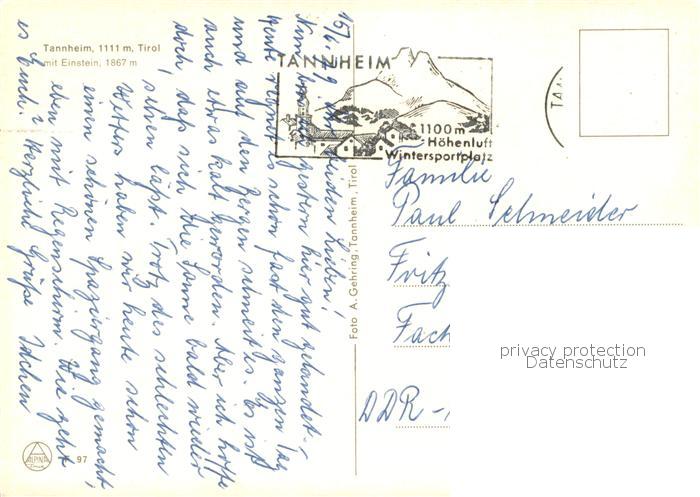 Tannheim, 1111 m, Tirol
mit Einstein, 1867 m
Ihr beiden Lieben!
Nun bin ich gestern hier gut gelandet.
Heute regnet es schon fast den ganzen Tag
und auf den Bergen schneit es. Es ist
auch etwas kalt geworden. Aber ich hoffe
doch, daß sich die Sonne bald wieder
sehen läßt. Trotz des schlechten
Wetters haben wir heute schon
einen schönen Spaziergang gemacht,
eben mit Regenschirm. Wie geht
es Euch? Herzliche Grüße
ALPINA
97
Foto A. Gehring, Tannheim, Tirol
TANNHEIM
1100 m
Höhenluft
Wintersportplatz
TA
Familie
Paul Schneider
Fritz
Fach
DDR -
privacy protection
Datenschutz